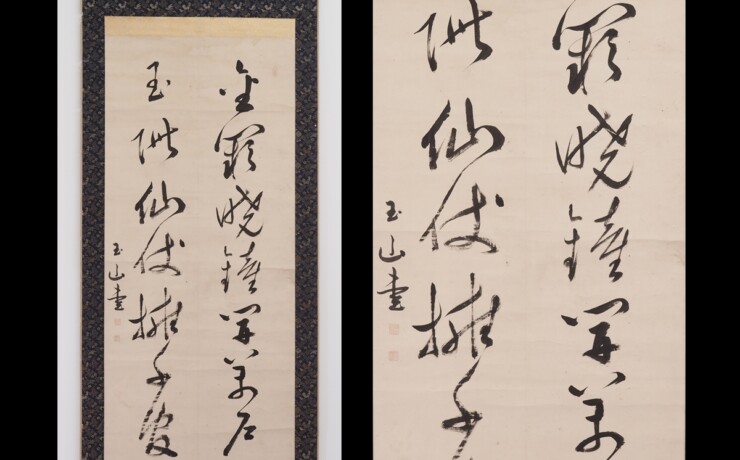 金闕曉鐘開萬戶
玉階仙仗擁千官
玉山書
闕曉鐘開萬
階仙仗擁千
玉山書